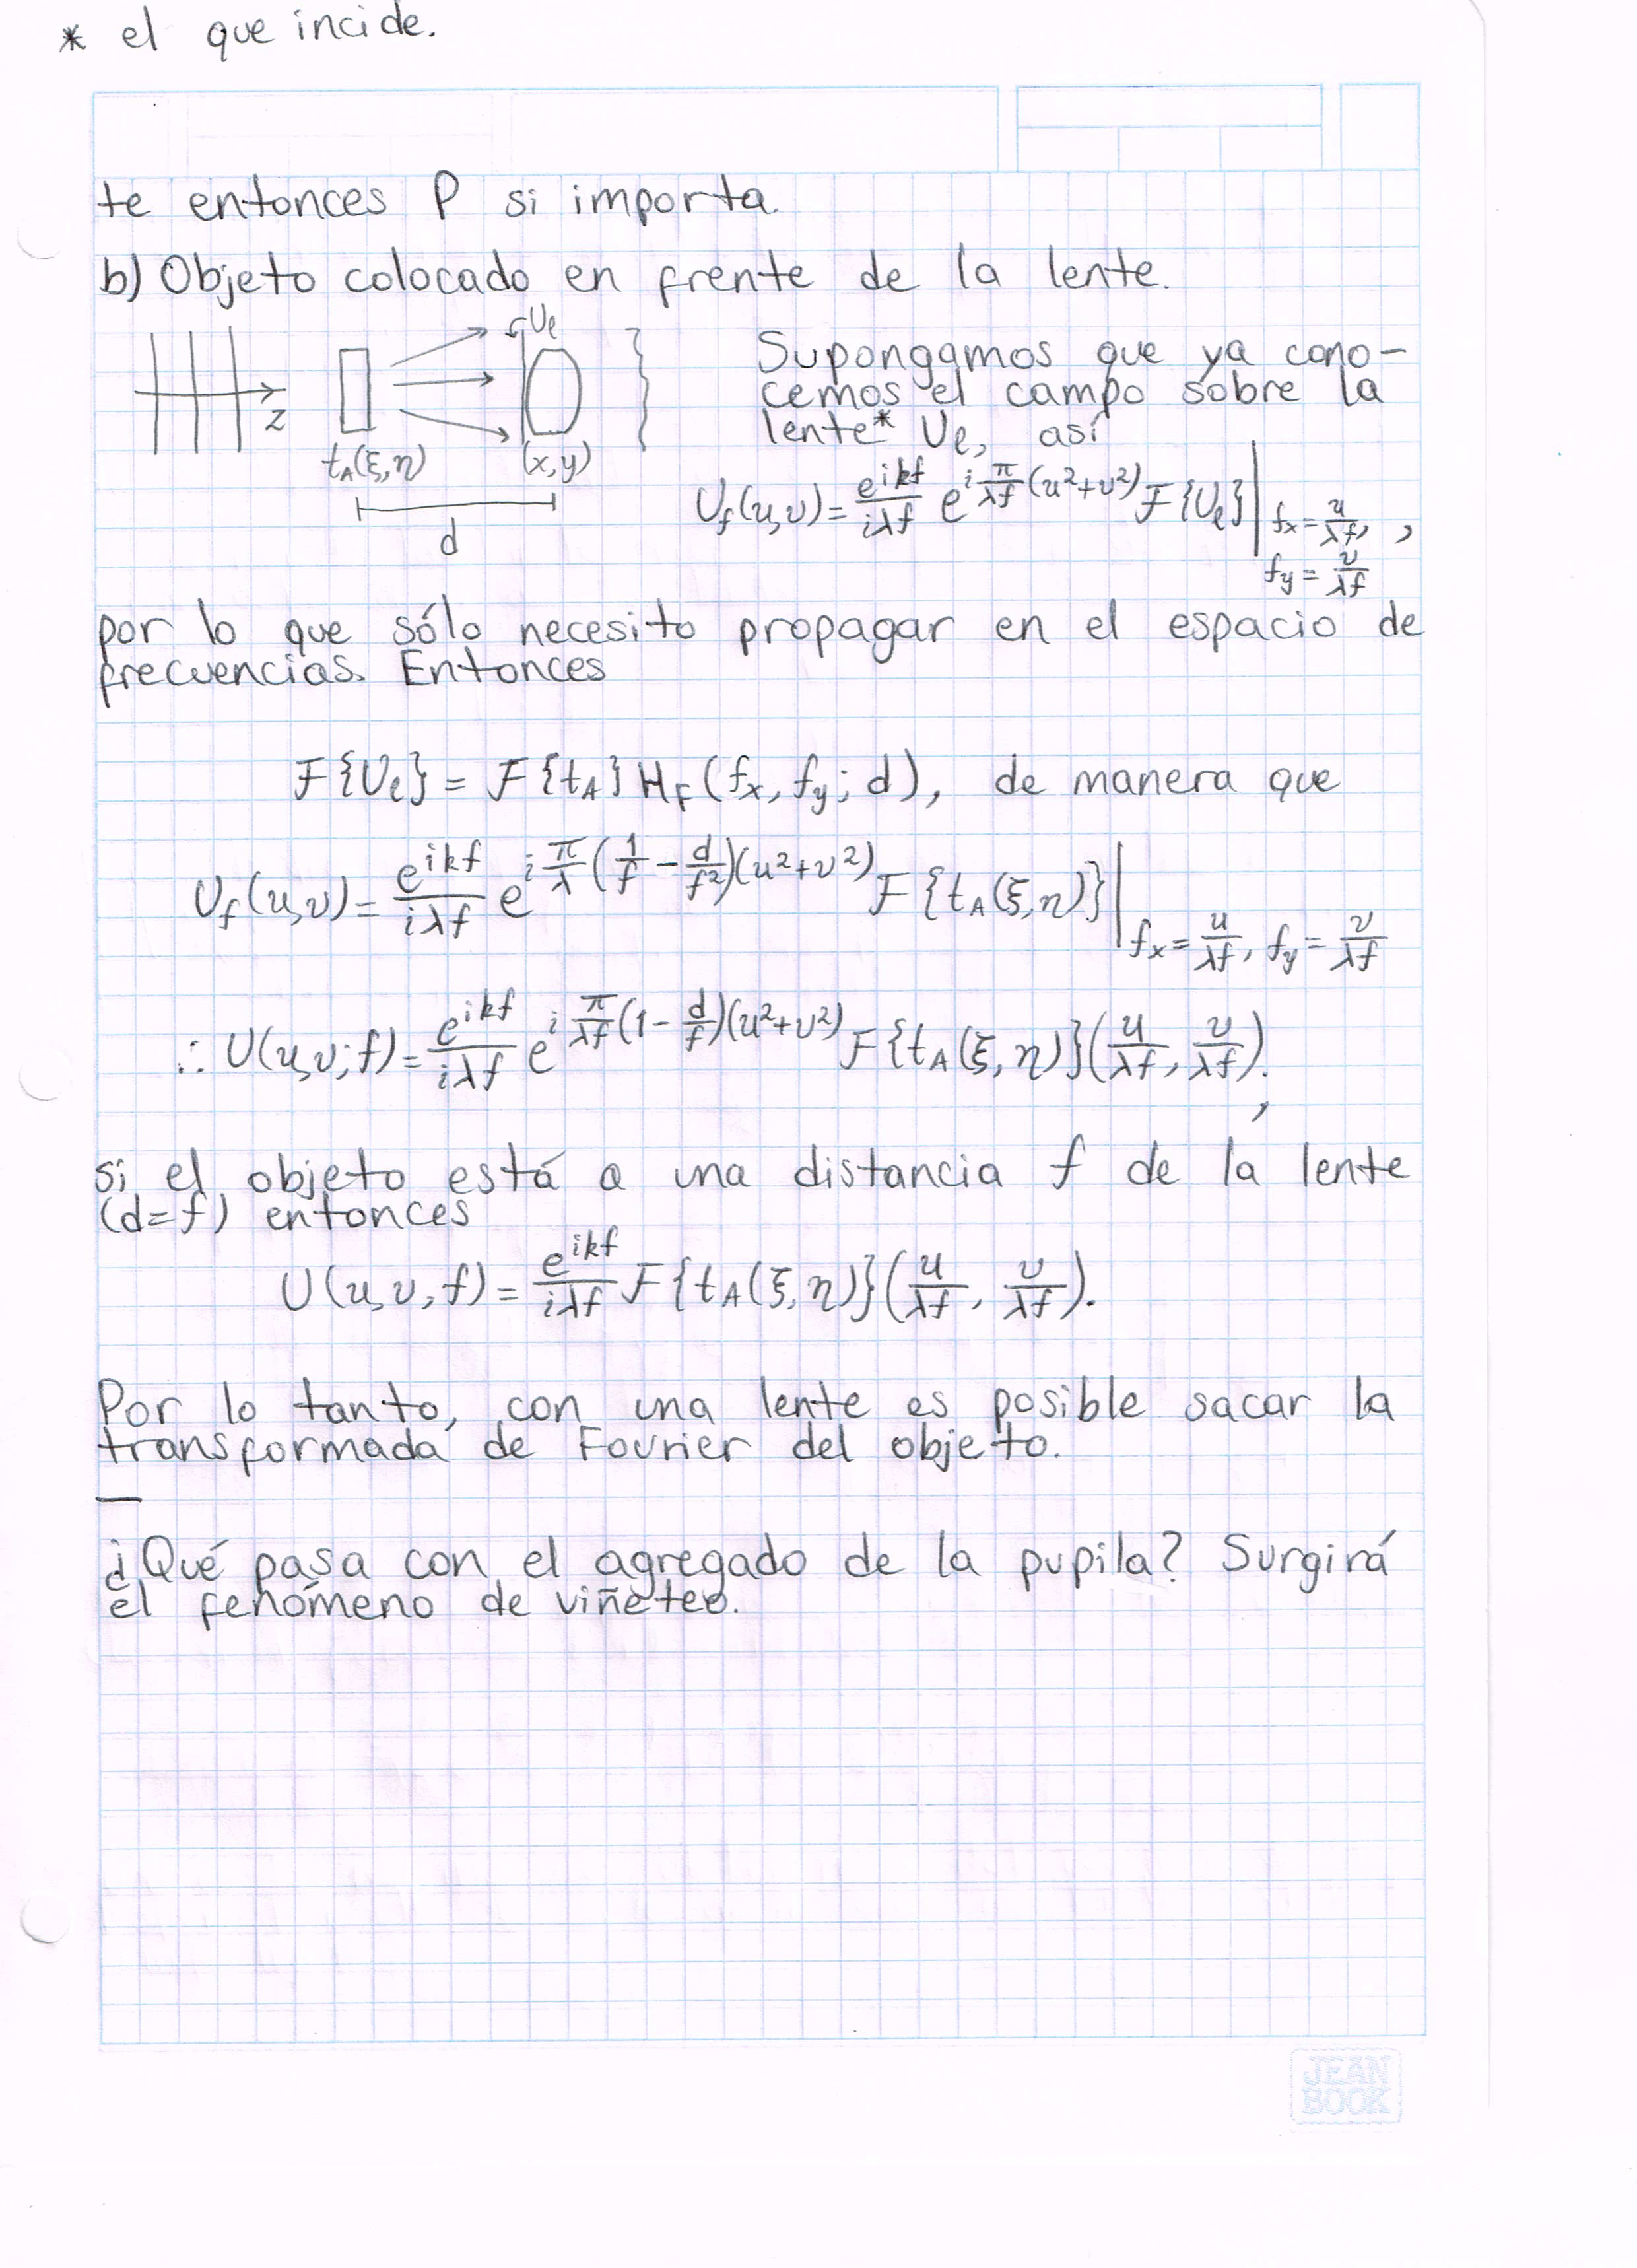 * el que incide.
te entonces P si importa.
b) Objeto colocado en frente de la lente.
Uₗ
z
t_A(ξ,η)
(x,y)
d
Supongamos que ya cono-
cemos el campo sobre la
lente* Uₗ, así
U_f(u,v) = \frac{e^{ikf}}{iλf} e^{i\frac{π}{λf}(u²+v²)} F{Uₗ}|_{f_x=\frac{u}{λf}, f_y=\frac{v}{λf}},
por lo que sólo necesito propagar en el espacio de
frecuencias. Entonces
F{Uₗ} = F{t_A} H_F(f_x, f_y; d), de manera que
U_f(u,v) = \frac{e^{ikf}}{iλf} e^{i\frac{π}{λ}(\frac{1}{f} - \frac{d}{f²})(u²+v²)} F{t_A(ξ,η)}|_{f_x=\frac{u}{λf}, f_y=\frac{v}{λf}}
∴ U(u,v;f) = \frac{e^{ikf}}{iλf} e^{i\frac{π}{λf}(1 - \frac{d}{f})(u²+v²)} F{t_A(ξ,η)}(\frac{u}{λf}, \frac{v}{λf}).,
si el objeto está a una distancia f de la lente
(d=f) entonces
U(u,v,f) = \frac{e^{ikf}}{iλf} F{t_A(ξ,η)}(\frac{u}{λf}, \frac{v}{λf}).
Por lo tanto, con una lente es posible sacar la
transformada de Fourier del objeto.
—
¿Qué pasa con el agregado de la pupila? Surgirá
el fenómeno de viñeteo.
JEAN
BOOK